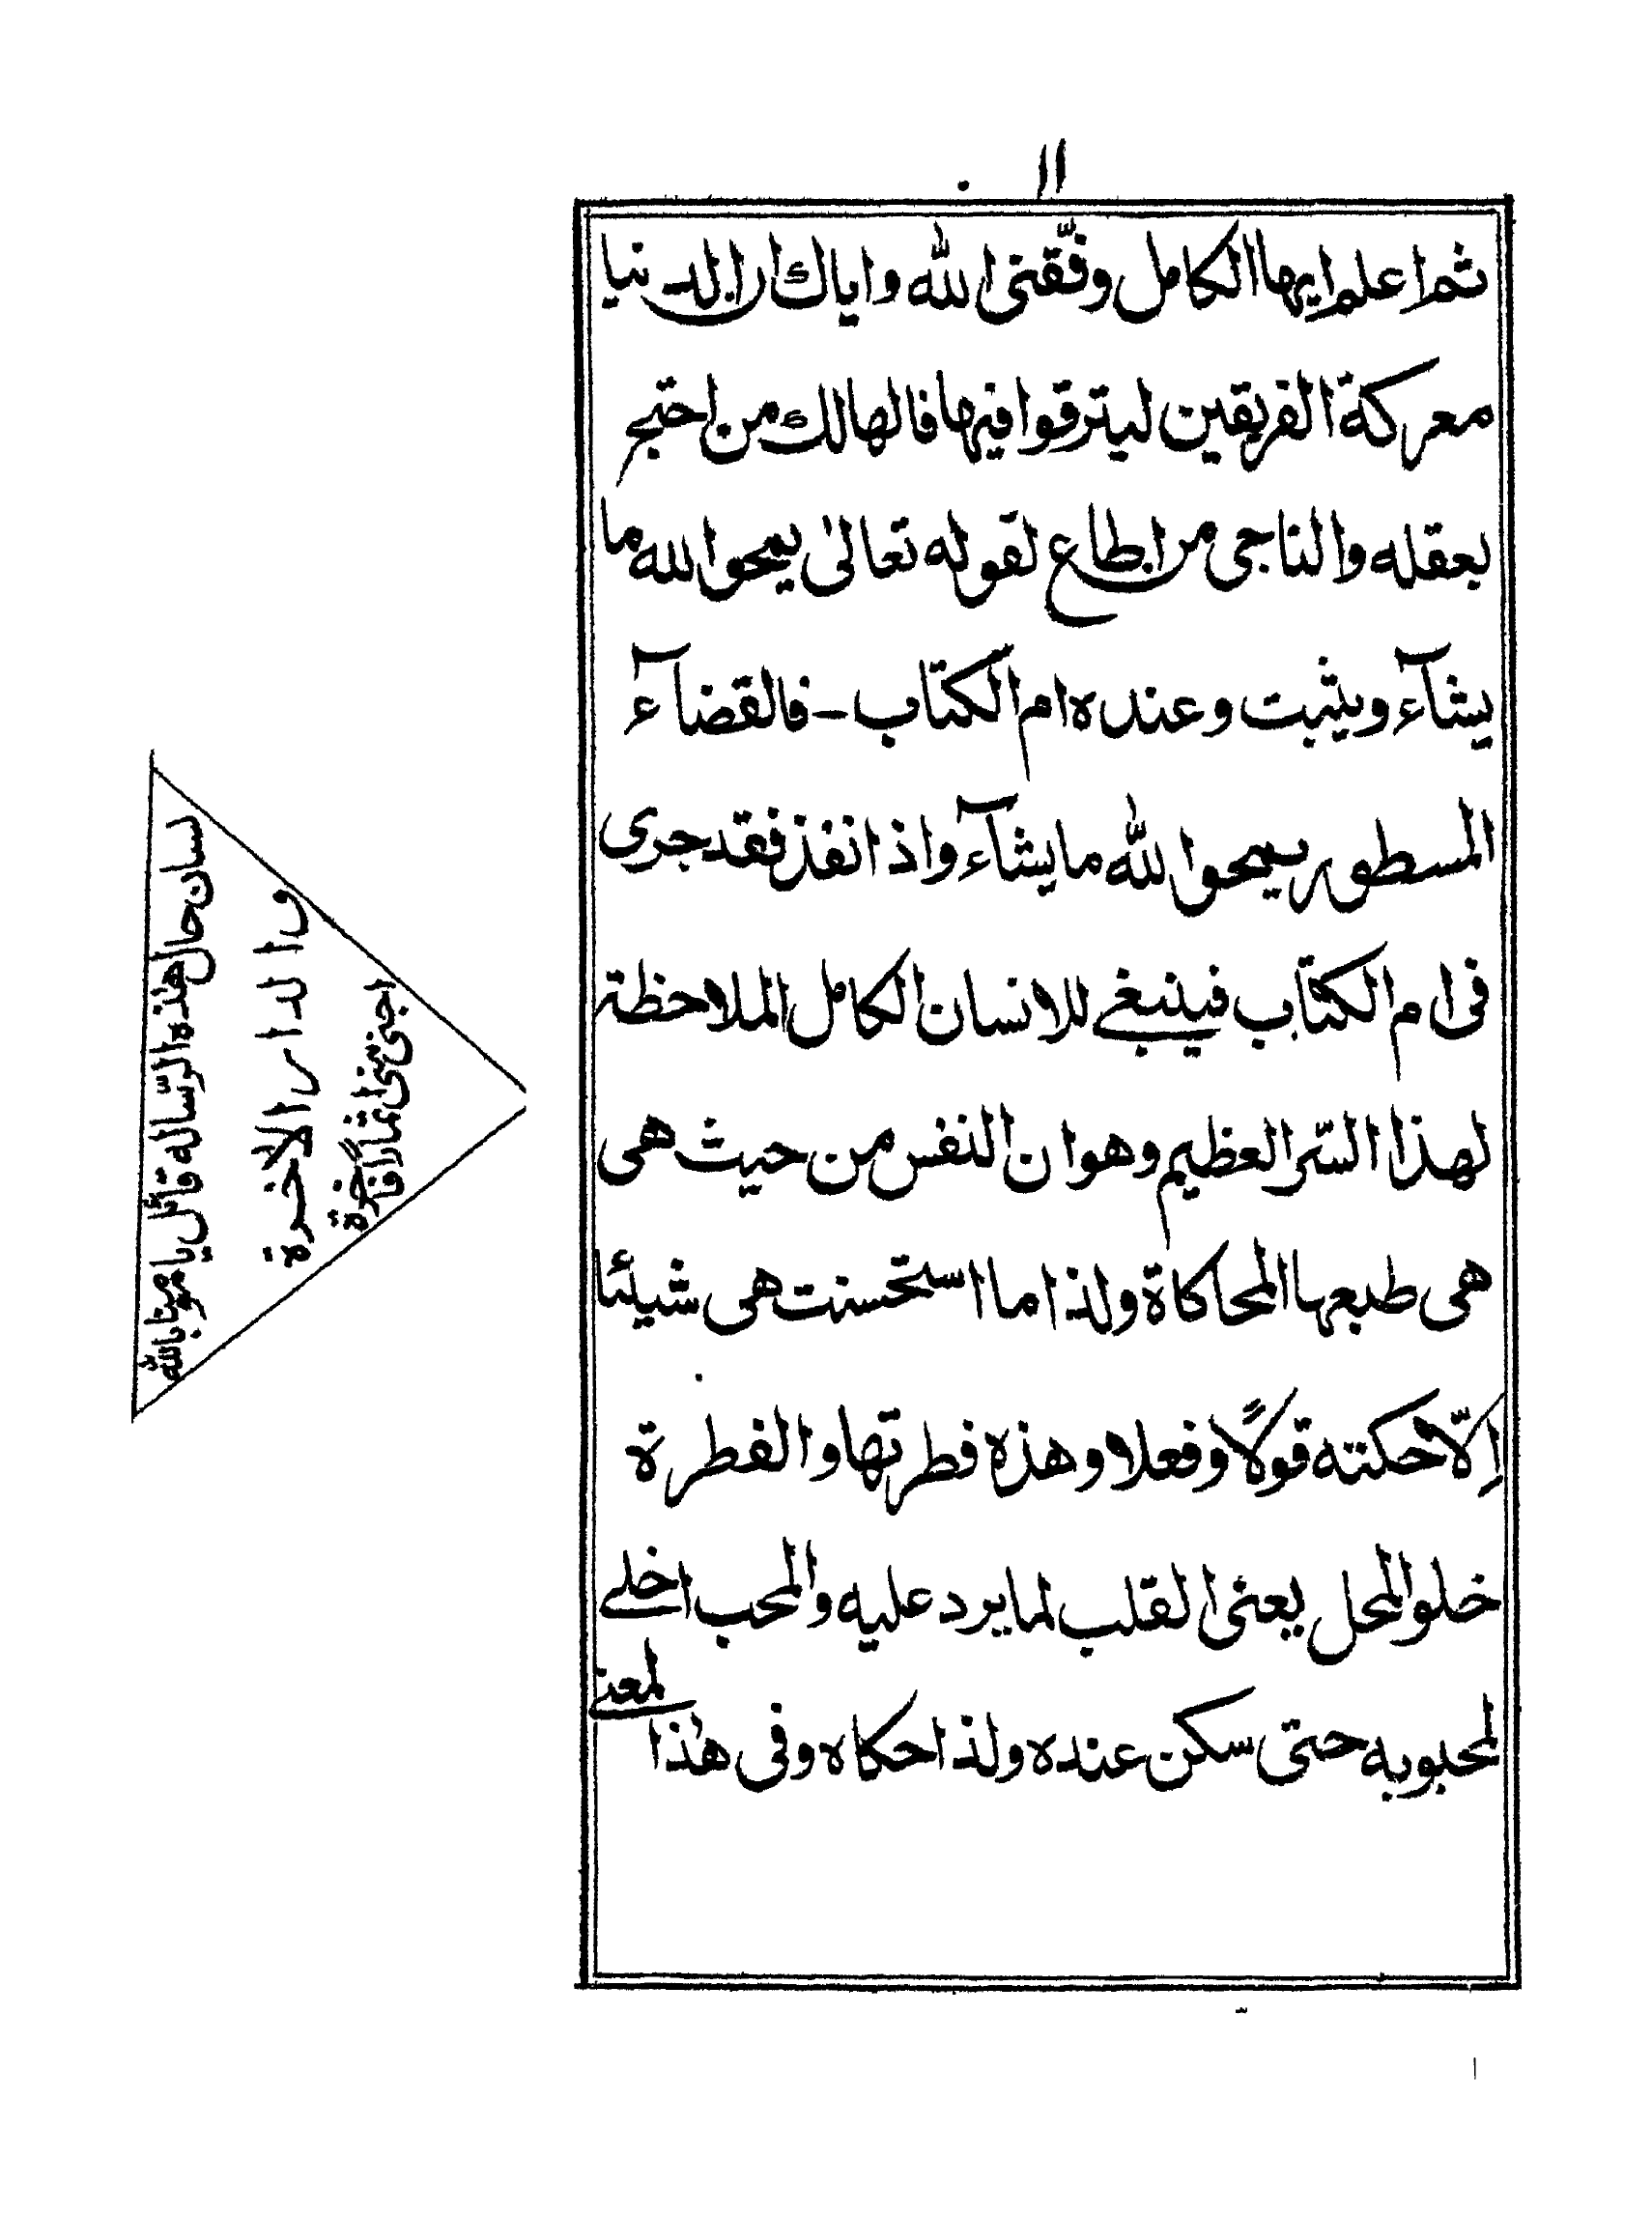 ۱۱
ثم اعلم ايها الكامل وفّقنى الله واياك ان الدنيا
معركة الفريقين ليترقوا فيها فالهالك من احتج
بعقله والناجى من اطاع لقوله تعالىٰ يمحوا لله ما
يشآء ويثبت وعنده ام الكتاب - فالقضآء
المسطور يمحوا لله ما يشآء واذا نفذ فقد جرى
فى ام الكتاب فينبغى للانسان الكامل الملاحظة
لهذا السّر العظيم وهوان النفس من حيث هى
هى طبعها المحاكاة ولذا ما استحسنت هى شيئا
اِلّا حكته قولاً وفعلا وهذه فطرتها والفطرة
خلوالمحل يعنى القلب لما يرد عليه والمحب اخلى
لمحبوبه حتى سكن عنده ولذا حكاه وفى هٰذا
لمعنى
لسان حال هٰذه الرّساله قائل يا مؤمنا بالله
والدار الاٰخرة
اجنى ثمارا فاخرة